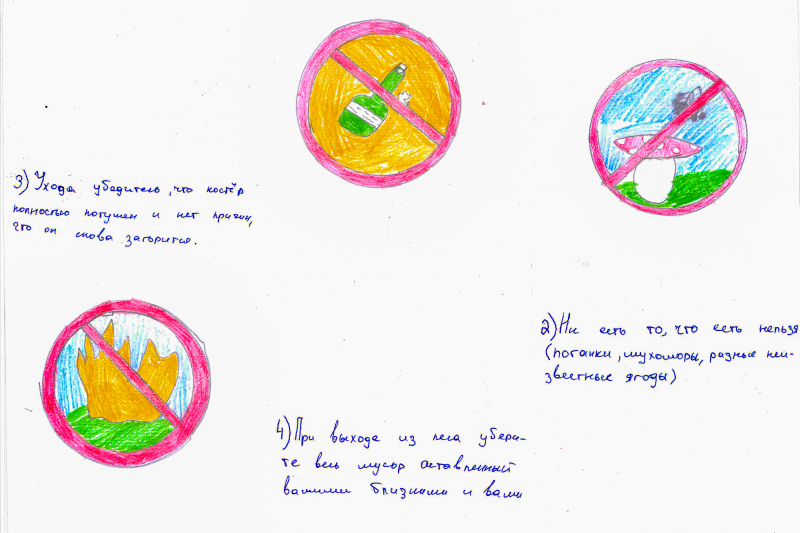 3) Уходя убедитесь, что костёр
полностью потушен и нет причин,
что он снова загорится.
2) Не есть то, что есть нельзя
(поганки, мухоморы, разные неи-
звестные ягоды)
4) При выходе из леса убери-
те весь мусор оставленный
вашими близкими и вами